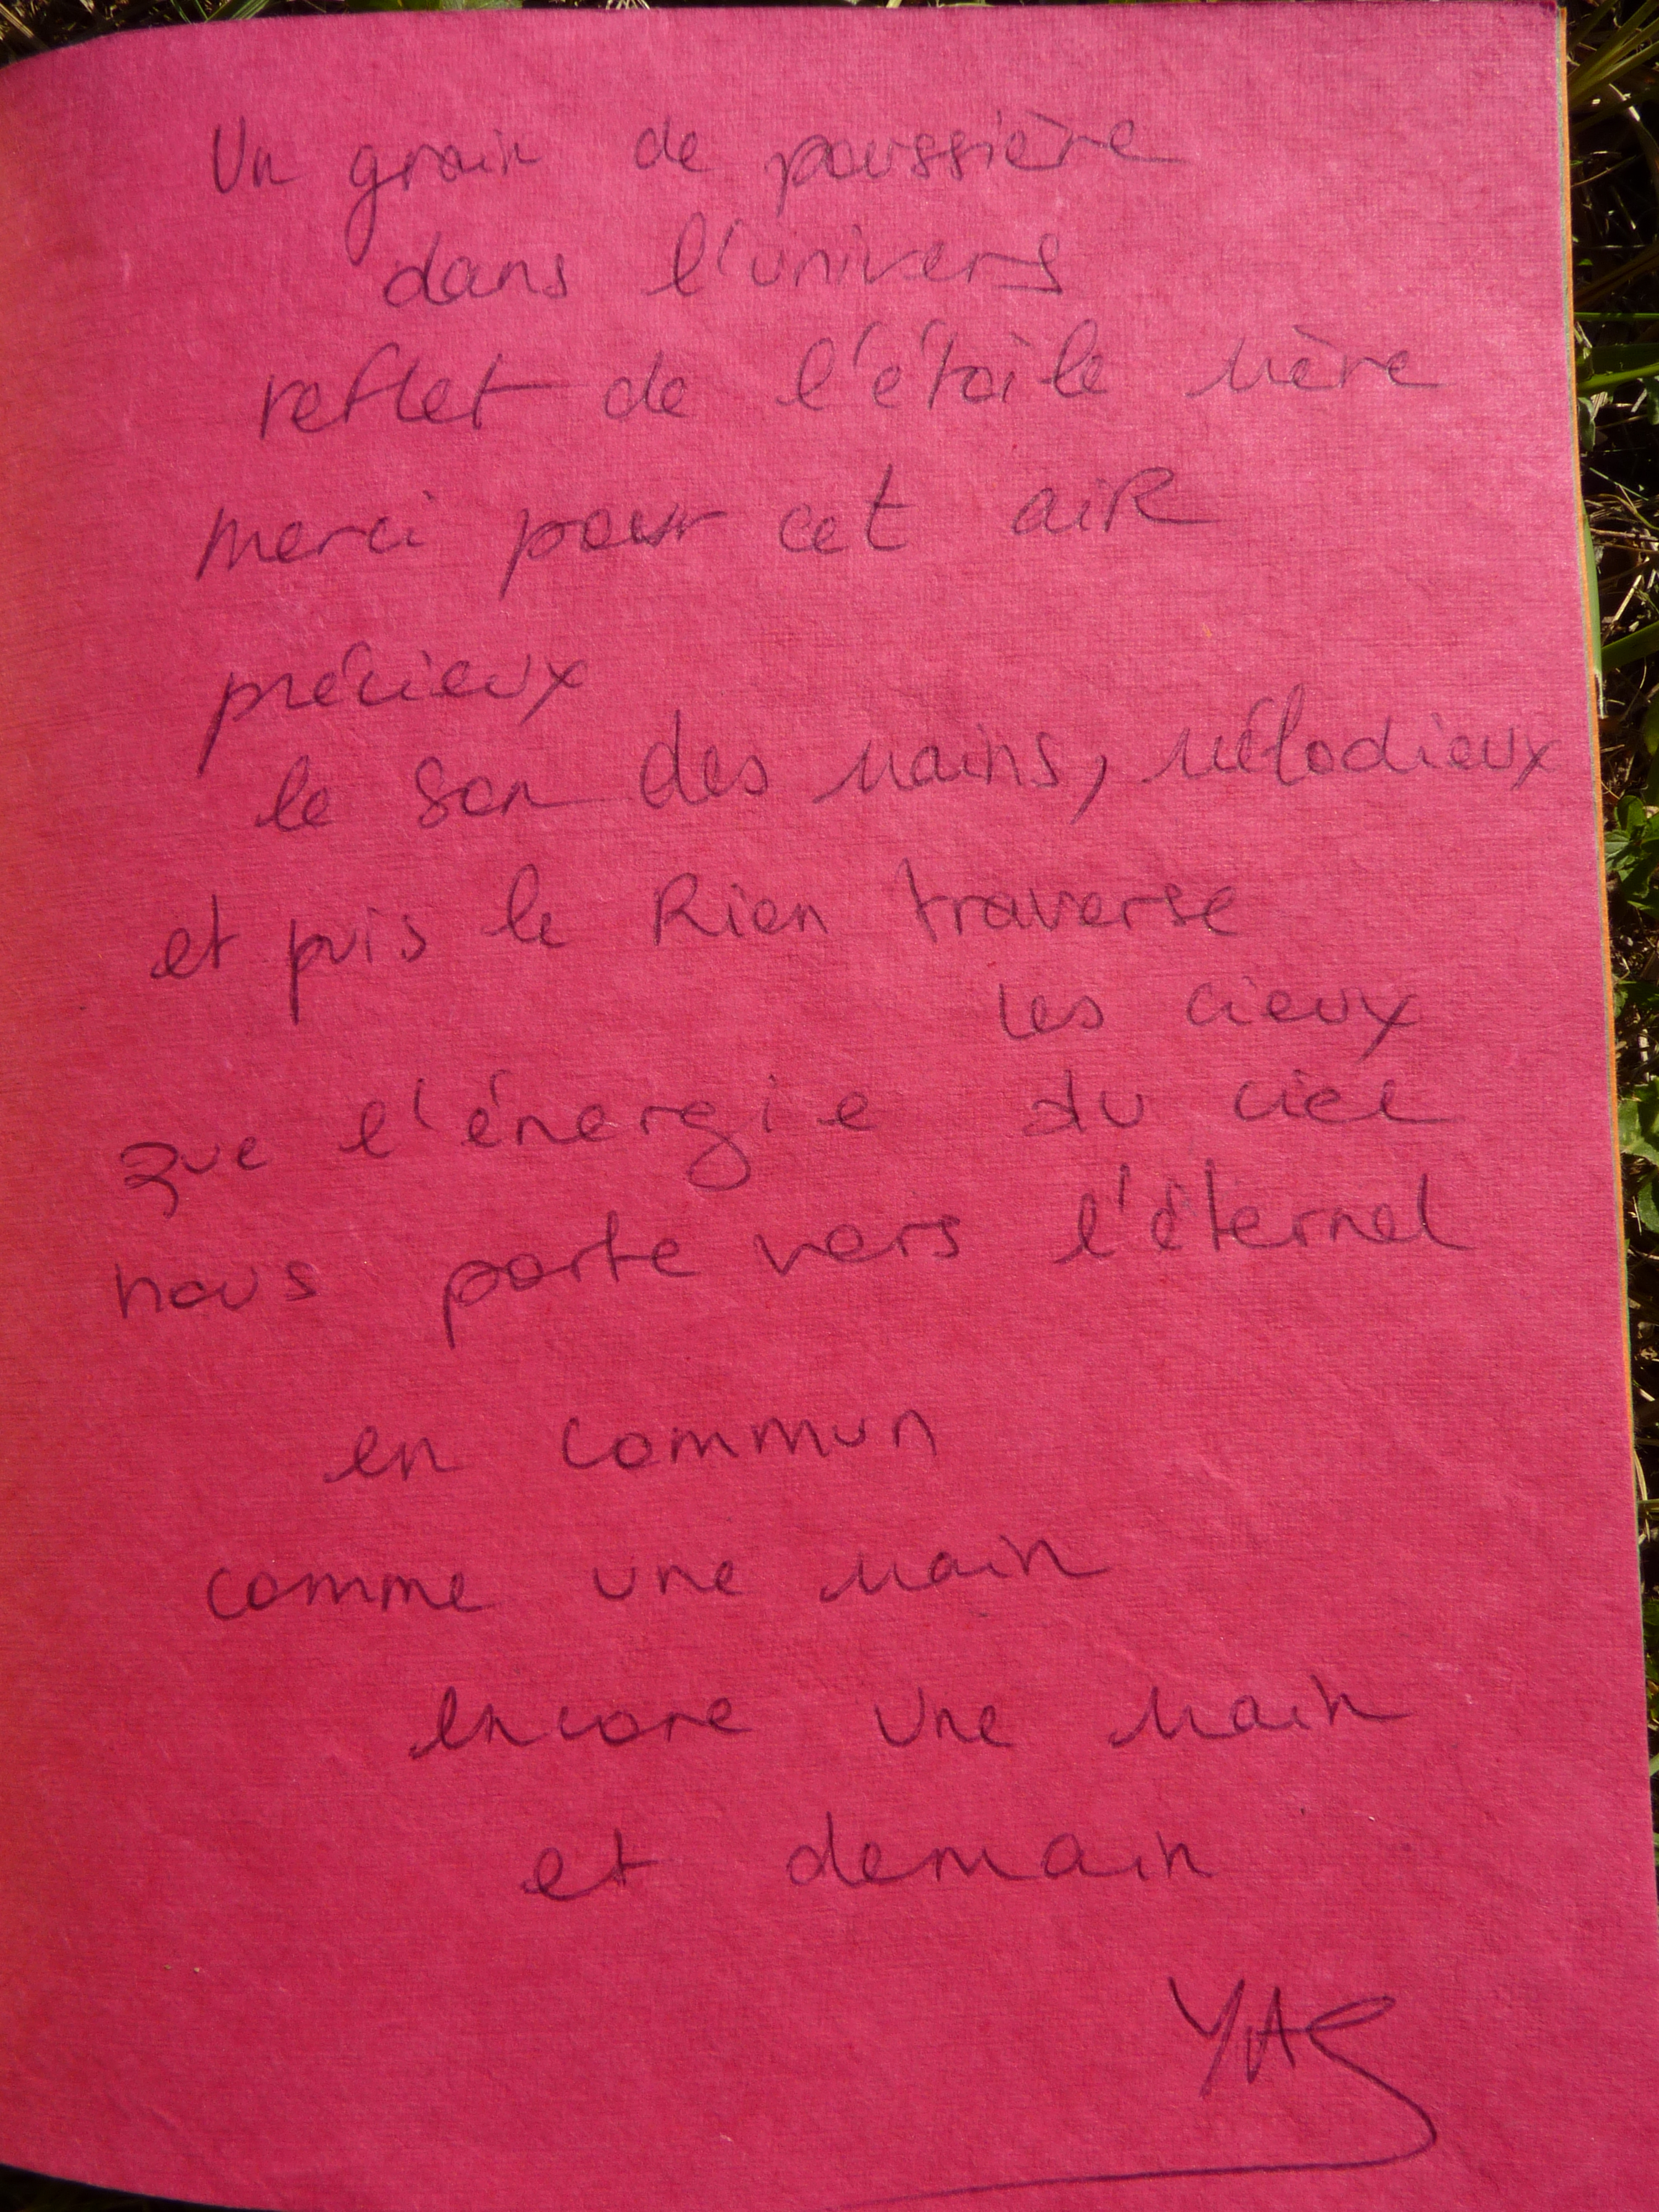 Un grain de poussière
dans l'univers
reflet de l'étoile mère
merci pour cet aiR
précieux
le son des mains, mélodieux
et puis le Rien traverse
les cieux
que l'énergie du ciel
nous porte vers l'éternel
en commun
comme une main
encore une main
et demain
YAS